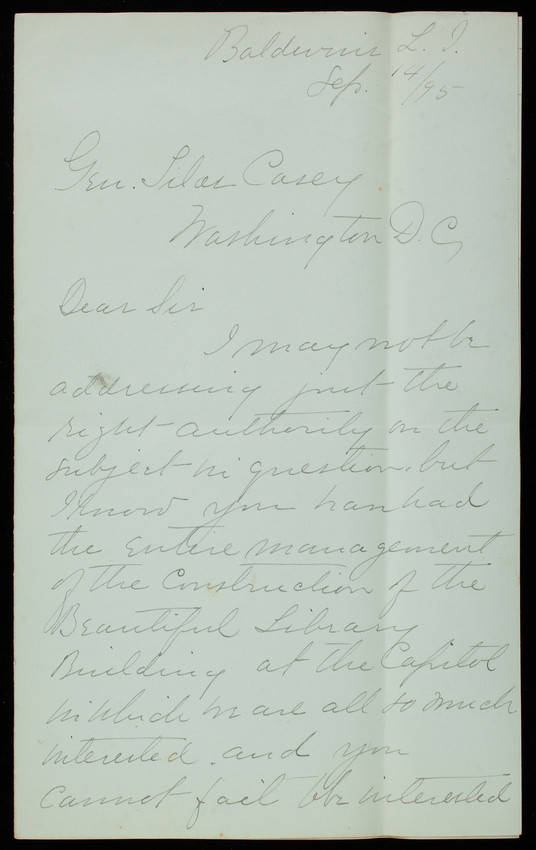 Baldwins L. I.
Sep. 14/95
Gen. Silas Casey
Washington D. C,
Dear Sir
I may not be
addressing just the
right authority on the
subject in question, but
I know you have had
the entire management
of the Construction of the
Beautiful Library
Building at the Capitol
in which we are all so much
interested. and you
cannot fail to be interested